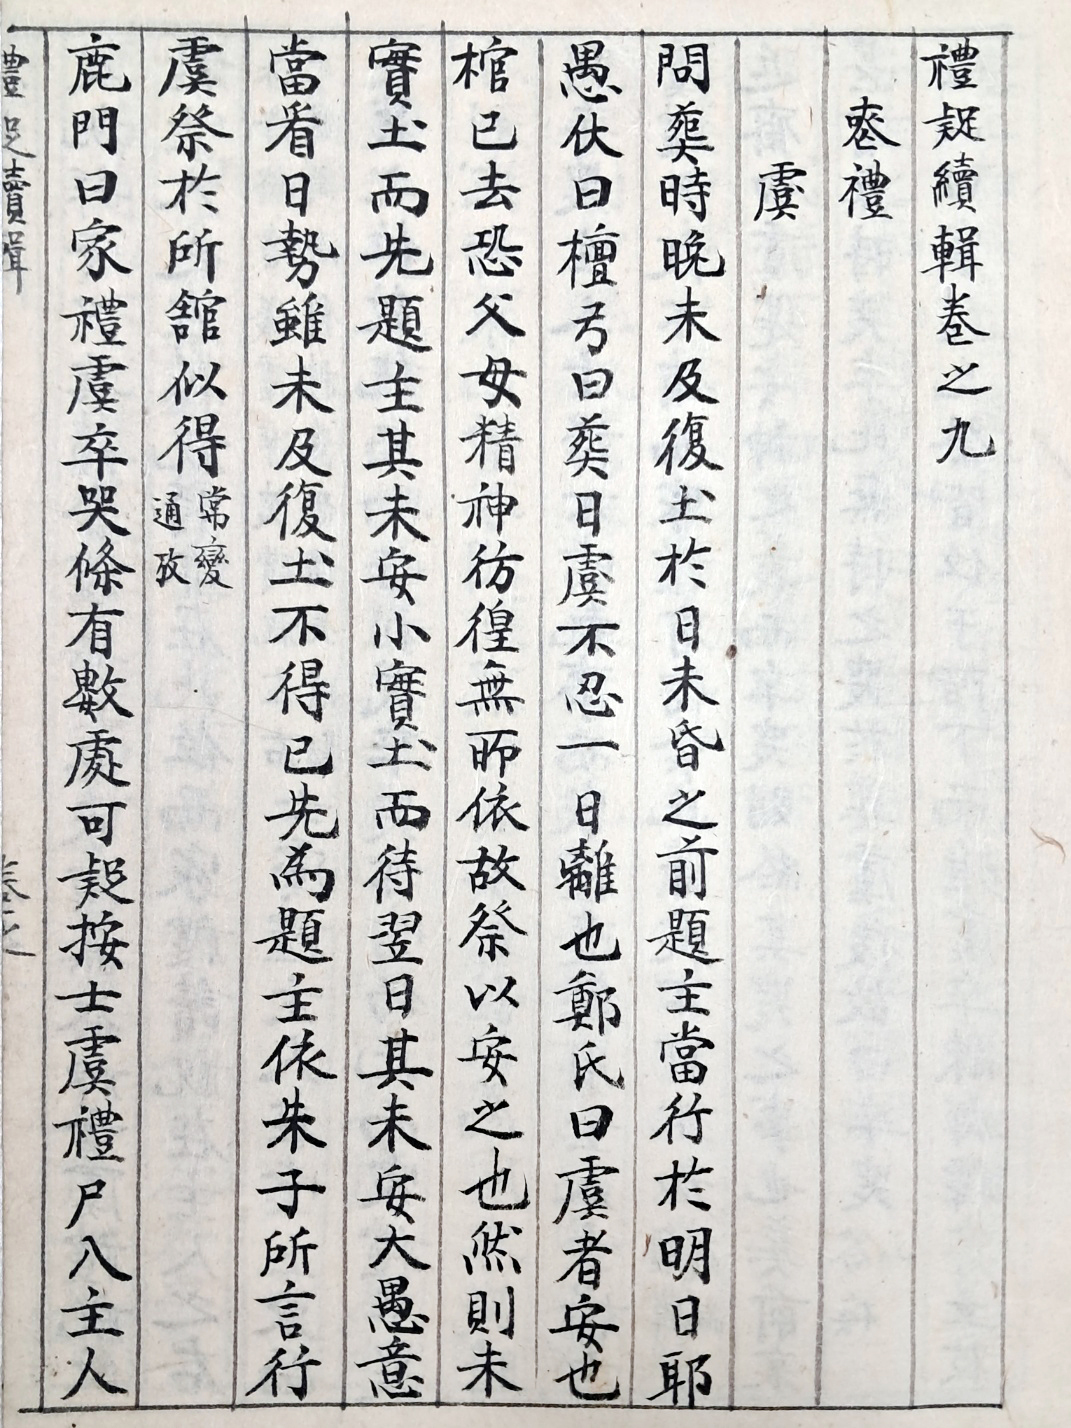 禮疑續輯卷之九
喪禮
虞
問葬時晚未及復土於日未昏之前題主當行於明日耶
愚伏曰檀弓曰葬日虞不忍一日離也鄭氏曰虞者安也
棺已去恐父母精神彷徨無所依故祭以安之也然則未
實土而先題主其未安小實土而待翌日其未安大愚意
當看日勢雖未及復土不得已先為題主依朱子所言行
虞祭於所館似得常變通攷
鹿門曰家禮虞卒哭條有數處可疑按士虞禮尸入主人
禮疑續輯 卷之